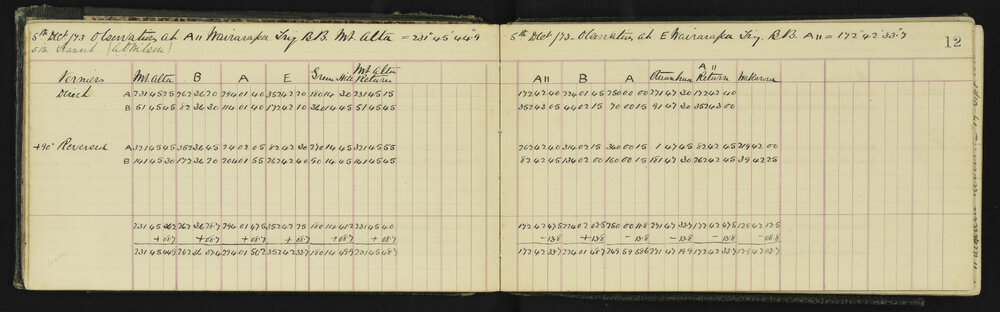 5th Dec 1/73 Observations at A11 Wairarapa Trig B.B. Mt. Alta = 231° 45' 44"9
5in Transit (A D Wilson)
Verniers Mt. Alta B A E Green Hill Mt Alta Return
Direct A 231 45 25 262 36 20 294 01 40 357 42 20 180 14 30 231 45 15
B 51 45 45 82 36 30 114 01 40 177 42 10 360 14 45 51 45 45
+90° Reversed A 321 45 45 352 36 45 24 02 05 82 42 30 270 14 45 321 45 55
B 141 45 30 172 36 20 204 01 55 262 42 40 90 14 45 141 45 45
231 45 36.2 262 36 28.7 294 01 47.5 352 42 25 180 14 41.2 231 45 40
+ 08.7 + 08.7 + 08.7 + 08.7 + 08.7 + 08.7
231 45 44.9 262 36 37.4 294 01 56.2 352 42 33.7 180 14 49.9 231 45 48.7
5th Dec 1/73 - Observations at E Wairarapa Trig. B.B. A11 = 172° 42' 33".7
12
A11 B A Otuanhua A11 Return Makarora
172 42 40 224 01 45 250 00 00 271 47 30 172 42 40
352 43 05 44 02 15 70 00 15 91 47 30 352 43 00
262 42 40 314 02 15 340 00 15 1 47 45 82 42 45 219 42 00
82 42 45 134 02 00 160 00 15 181 47 30 262 42 45 39 42 25
172 42 47.5 224 02 02.5 250 00 11.8 271 47 33.7 172 42 47.5 129 42 17.5
- 13.8 + 13.8 - 13.8 - 13.8 - 13.8 - 08.8
172 42 33.7 224 01 48.7 249 59 58.6 271 47 19.9 172 42 33.7 129 42 03.7